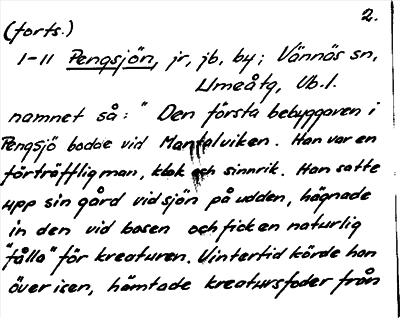 2.
(forts.)
1-11 Pengsjön, jr, jb, by; Vännäs sn,
Umeåtg, Vb.l.
namnet så: " Den första bebyggaren i
Pengsjö bodde vid Mantalviken. Han var en
förträfflig man, klok och sinnrik. Han satte
upp sin gård vid sjön på udden, hägnade
in den vid basen och fick en naturlig
"fålla" för kreaturen. Vintertid körde han
över isen, hämtade kreatursfoder från